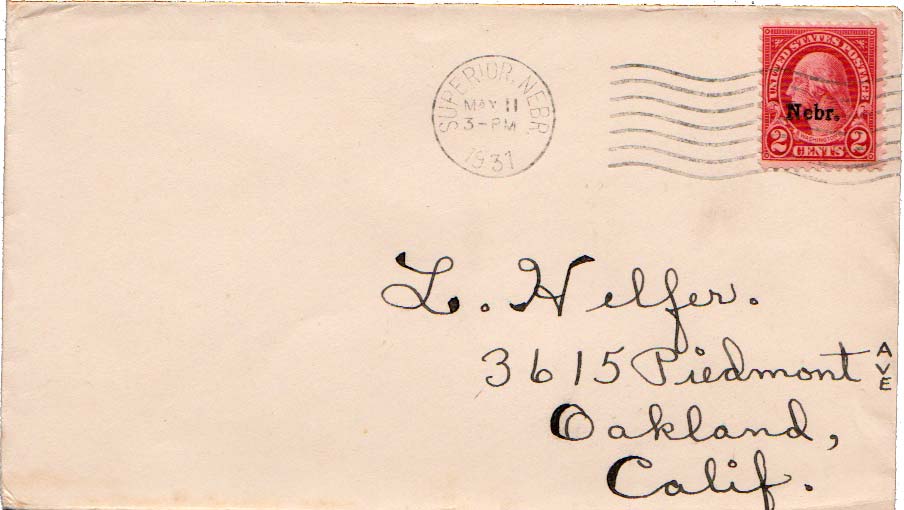 SUPERIOR, NEBR.
MAY 11
3-PM
1931
UNITED STATES POSTAGE
Nebr.
WASHINGTON
2 CENTS 2
L. Helfer.
3615 Piedmont AVE
Oakland,
Calif.